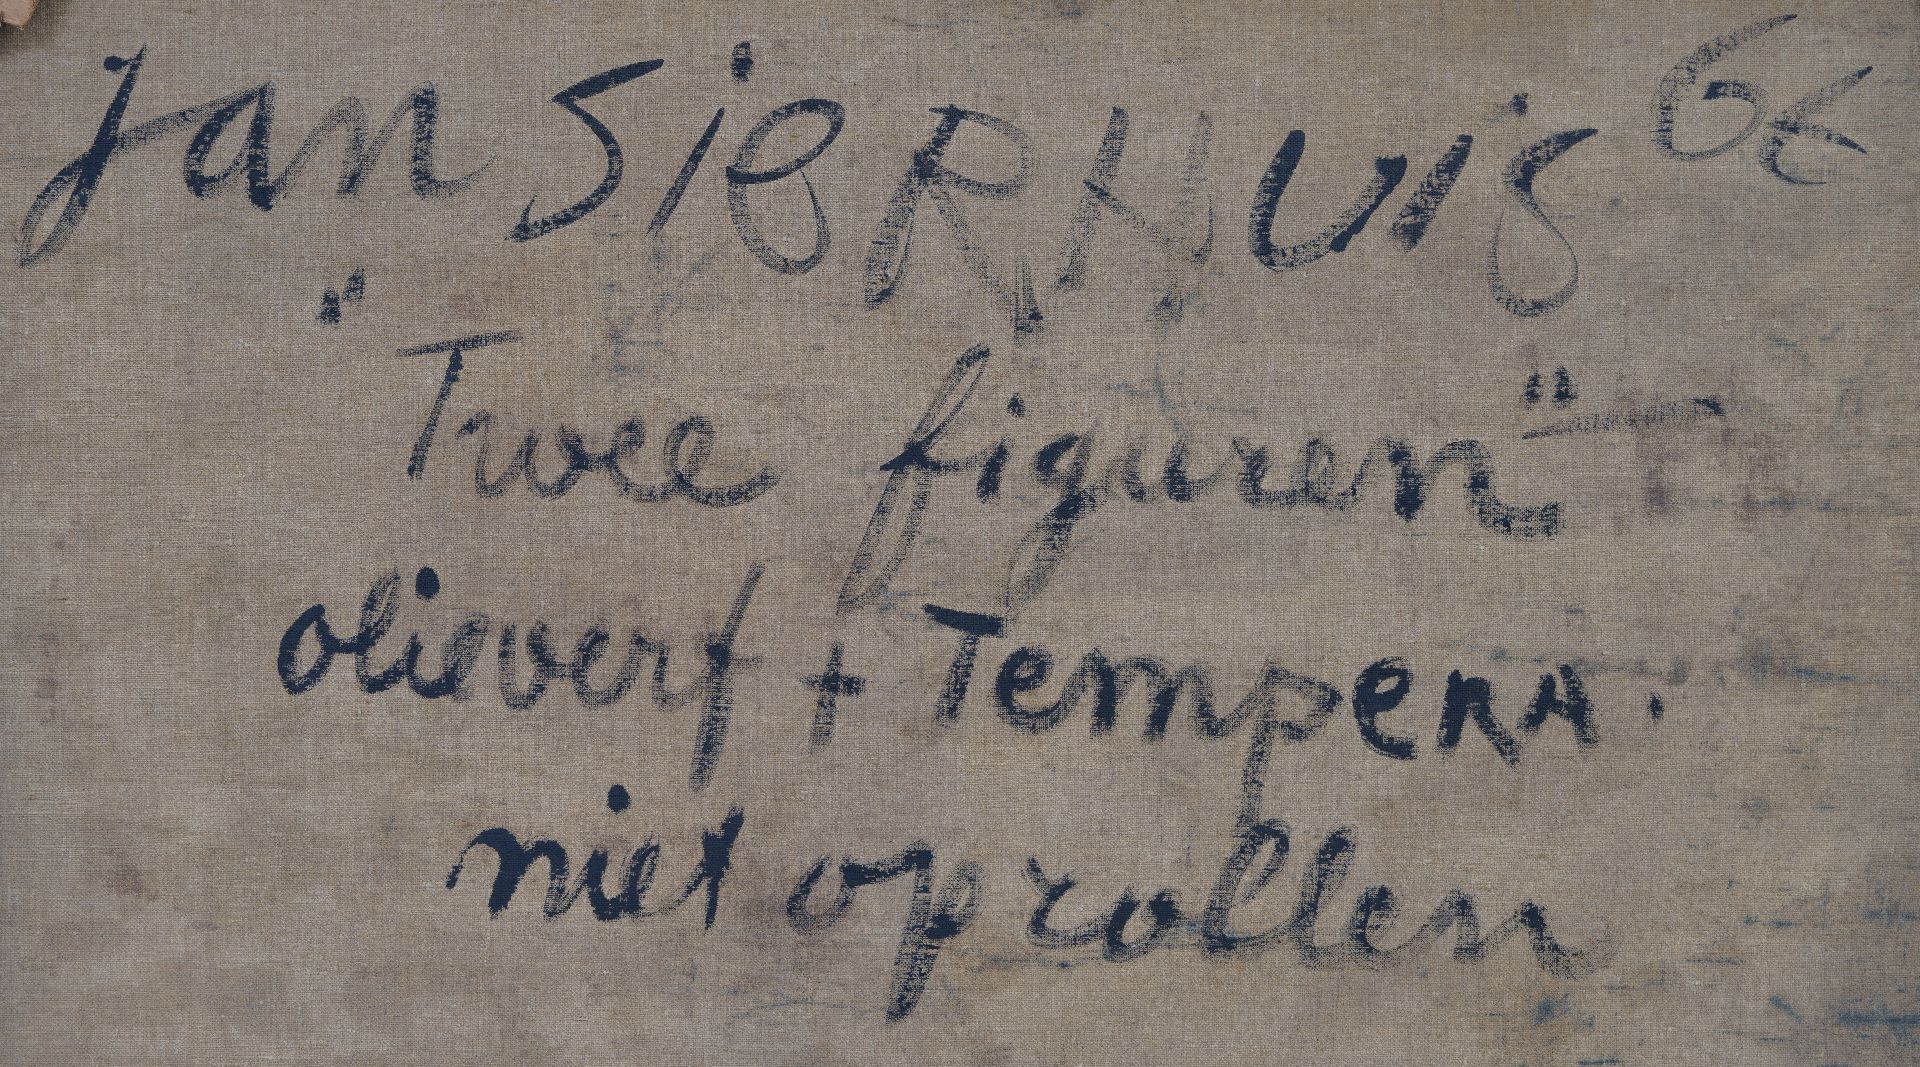 Jan SiERHuis
"Twee figuren"
olieverf + Tempera.
niet oprollen